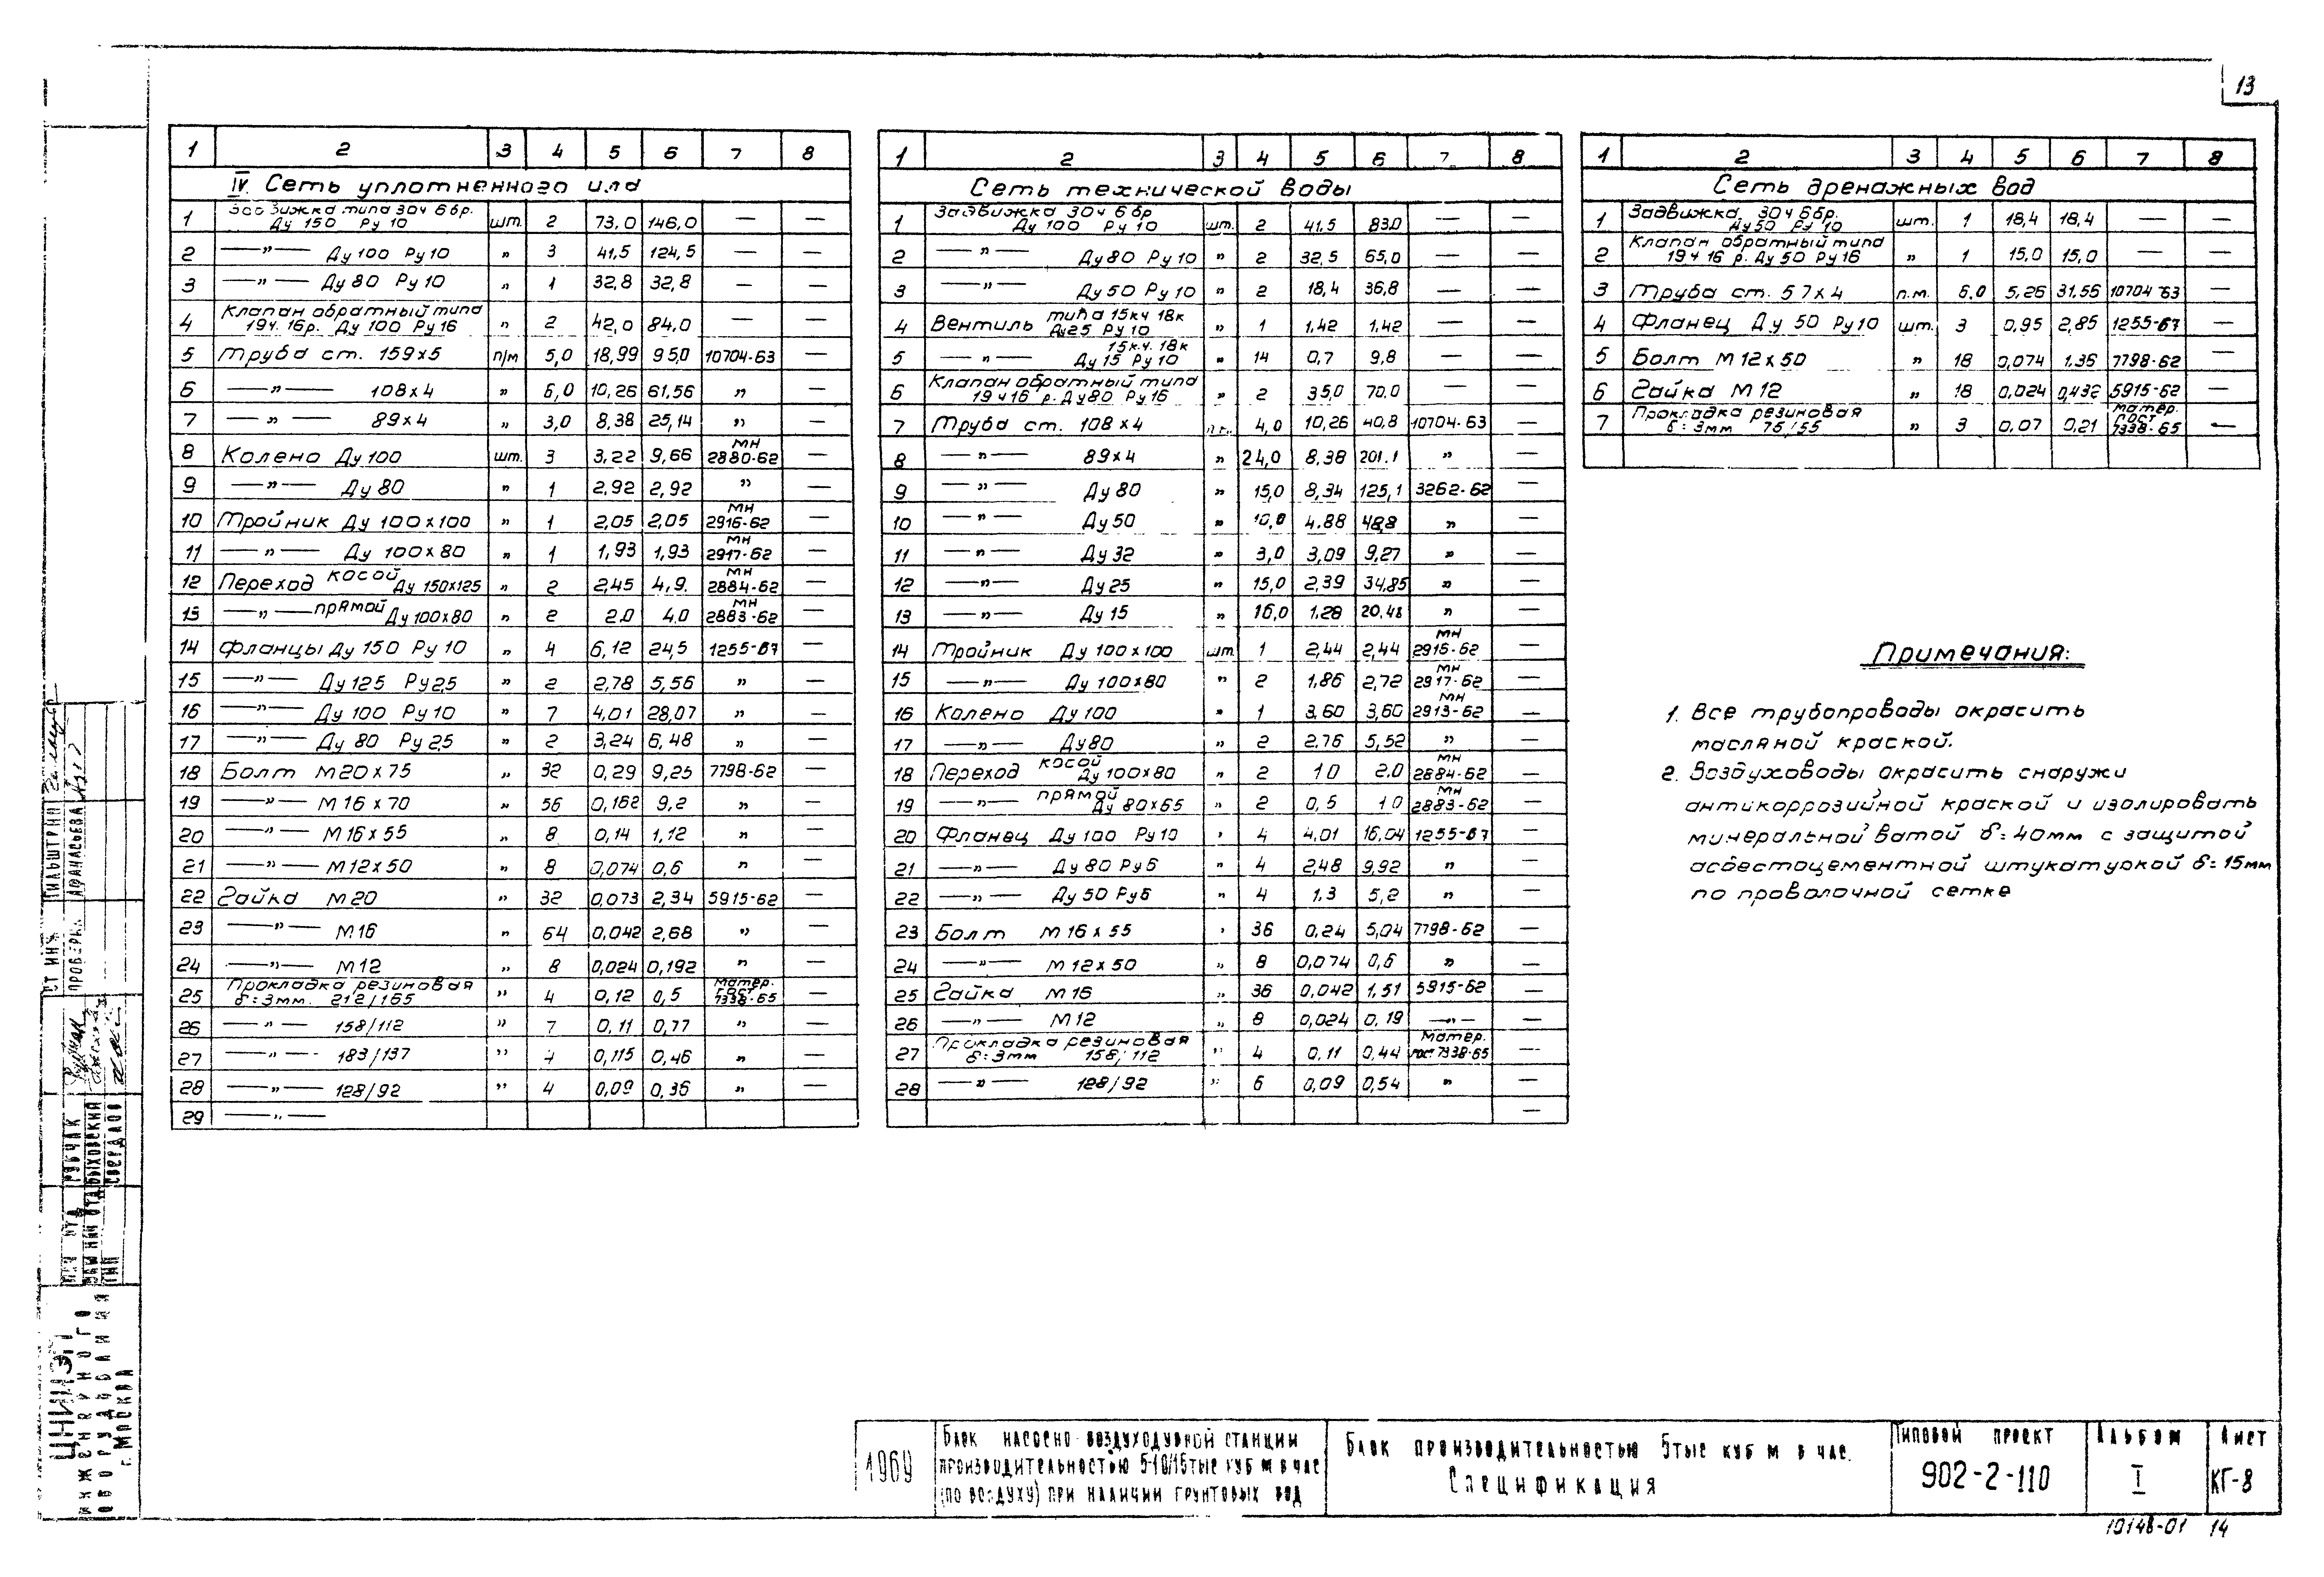 13
1 2 3 4 5 6 7 8
IV. Сеть уплотненного ила
1 Задвижка типа 30ч 6 бр. Ду 150 Ру 10 шт. 2 73,0 146,0 — —
2 —"— Ду 100 Ру 10 " 3 41,5 124,5 — —
3 —"— Ду 80 Ру 10 " 1 32,8 32,8 — —
4 Клапан обратный типа 19ч. 16р. Ду 100 Ру 16 " 2 42,0 84,0 — —
5 Труба ст. 159х5 п/м 5,0 18,99 95,0 10704-63 —
6 —"— 108х4 " 6,0 10,26 61,56 " —
7 —"— 89х4 " 3,0 8,38 25,14 " —
8 Колено Ду 100 шт. 3 3,22 9,66 МН 2880-62 —
9 —"— Ду 80 " 1 2,92 2,92 " —
10 Тройник Ду 100х100 " 1 2,05 2,05 МН 2916-62 —
11 —"— Ду 100х80 " 1 1,93 1,93 МН 2917-62 —
12 Переход косой Ду 150х125 " 2 2,45 4,9. МН 2884-62 —
13 —"— прямой Ду 100х80 " 2 2.0 4.0 МН 2883-62 —
14 Фланцы Ду 150 Ру 10 " 4 6,12 24,5 1255-67 —
15 —"— Ду 125 Ру 2,5 " 2 2,78 5,56 " —
16 —"— Ду 100 Ру 10 " 7 4,01 28,07 " —
17 —"— Ду 80 Ру 2,5 " 2 3,24 6,48 " —
18 Болт М20х75 " 32 0,29 9,25 7798-62 —
19 —"— М16х70 " 56 0,162 9,2 " —
20 —"— М16х55 " 8 0,14 1,12 " —
21 —"— М12х50 " 8 0,074 0,6 " —
22 Гайка М20 " 32 0,073 2,34 5915-62 —
23 —"— М16 " 64 0,042 2,68 " —
24 —"— М12 " 8 0,024 0,192 " —
25 Прокладка резиновая δ=3мм. 212/165 " 4 0,12 0,5 Матер. ГОСТ 7338-65 —
26 —"— 158/112 " 7 0,11 0,77 " —
27 —"— 183/137 " 4 0,115 0,46 " —
28 —"— 128/92 " 4 0,09 0,36 " —
29 —"—
1 2 3 4 5 6 7 8
Сеть технической воды
1 Задвижка 30ч 6 бр Ду 100 Ру 10 шт. 2 41,5 83,0 — —
2 —"— Ду 80 Ру 10 " 2 32,5 65,0 — —
3 —"— Ду 50 Ру 10 " 2 18,4 36,8 — —
4 Вентиль типа 15кч 18к Ду 25 Ру 10 " 1 1,42 1,42 — —
5 —"— 15к.ч. 18к Ду 15 Ру 10 " 14 0,7 9,8 — —
6 Клапан обратный типа 19ч16 р. Ду 80 Ру 16 " 2 35,0 70,0 — —
7 Труба ст. 108х4 4,0 10,26 40,8 10704-63 —
8 —"— 89х4 " 24,0 8,38 201.1 " —
9 —"— Ду 80 " 15,0 8,34 125,1 3262-62 —
10 —"— Ду 50 " 10,0 4.88 48,8 " —
11 —"— Ду 32 " 3,0 3,09 9,27 " —
12 —"— Ду 25 " 15,0 2,39 34,85 " —
13 —"— Ду 15 " 16,0 1,28 20,48 " —
14 Тройник Ду 100х100 шт. 1 2,44 2,44 МН 2916-62 —
15 —"— Ду 100х80 " 2 1,86 2,72 МН 2917-62 —
16 Колено Ду 100 " 1 3,60 3,60 МН 2913-62 —
17 —"— Ду 80 " 2 2.76 5,52 " —
18 Переход косой Ду 100х80 " 2 1 0 2.0 МН 2884-62 —
19 —"— прямой Ду 80х65 " 2 0,5 1 0 МН 2883-62 —
20 Фланец Ду 100 Ру 10 " 4 4.01 16,04 1255-67 —
21 —"— Ду 80 Ру 6 " 4 2,48 9,92 " —
22 —"— Ду 50 Ру 6 " 4 1.3 5,2 " —
23 Болт М16х55 " 36 0,24 5,04 7798-62 —
24 —"— М12х50 " 8 0,074 0,6 " —
25 Гайка М16 " 36 0,042 1,51 5915-62 —
26 —"— М12 " 8 0,024 0,19 —"— —
27 Прокладка резиновая δ=3мм 158/112 " 4 0,11 0,44 Матер. ГОСТ 7338-65 —
28 —"— 128/92 " 6 0,09 0,54 " —
—
1 2 3 4 5 6 7 8
Сеть дренажных вод
1 Задвижка 30ч 6 бр. Ду 50 Ру 10 шт. 1 18,4 18,4 — —
2 Клапан обратный типа 19ч 16 р. Ду 50 Ру 16 " 1 15,0 15,0 — —
3 Труба ст. 57х4 п.м. 6,0 5,26 31,56 10704-63 —
4 Фланец Ду 50 Ру 10 шт. 3 0,95 2,85 1255-67 —
5 Болт М12х50 " 18 0,074 1,36 7798-62 —
6 Гайка М12 " 18 0,024 0,432 5915-62 —
7 Прокладка резиновая δ=3мм 76/55 " 3 0,07 0,21 Матер. ГОСТ 7338-65 —
Примечания:
1. Все трубопроводы окрасить
масляной краской.
2. Воздуховоды окрасить снаружи
антикоррозийной краской и изолировать
минеральной ватой δ=40мм с защитой
асбестоцементной штукатуркой δ=15мм
по проволочной сетке
СТ ИНЖ ГИЛЬШТРИП
ПРОВЕРИЛ АФАНАСЬЕВА
РУБЧАК
ВЫХОВСКИЙ
ГИП СВЕРДЛОВ
ЦНИИЭП
ИНЖЕНЕРНОГО
ОБОРУДОВАНИЯ
г. МОСКВА
1969
Блок насосно-воздуходувной станции
производительностью 5-10/15тыс куб м в час
(по воздуху) при наличии грунтовых вод
Блок производительностью 5тыс куб м в час.
Спецификация
Типовой проект
902-2-110
Альбом
I
Лист
КГ-8
10148-01 14